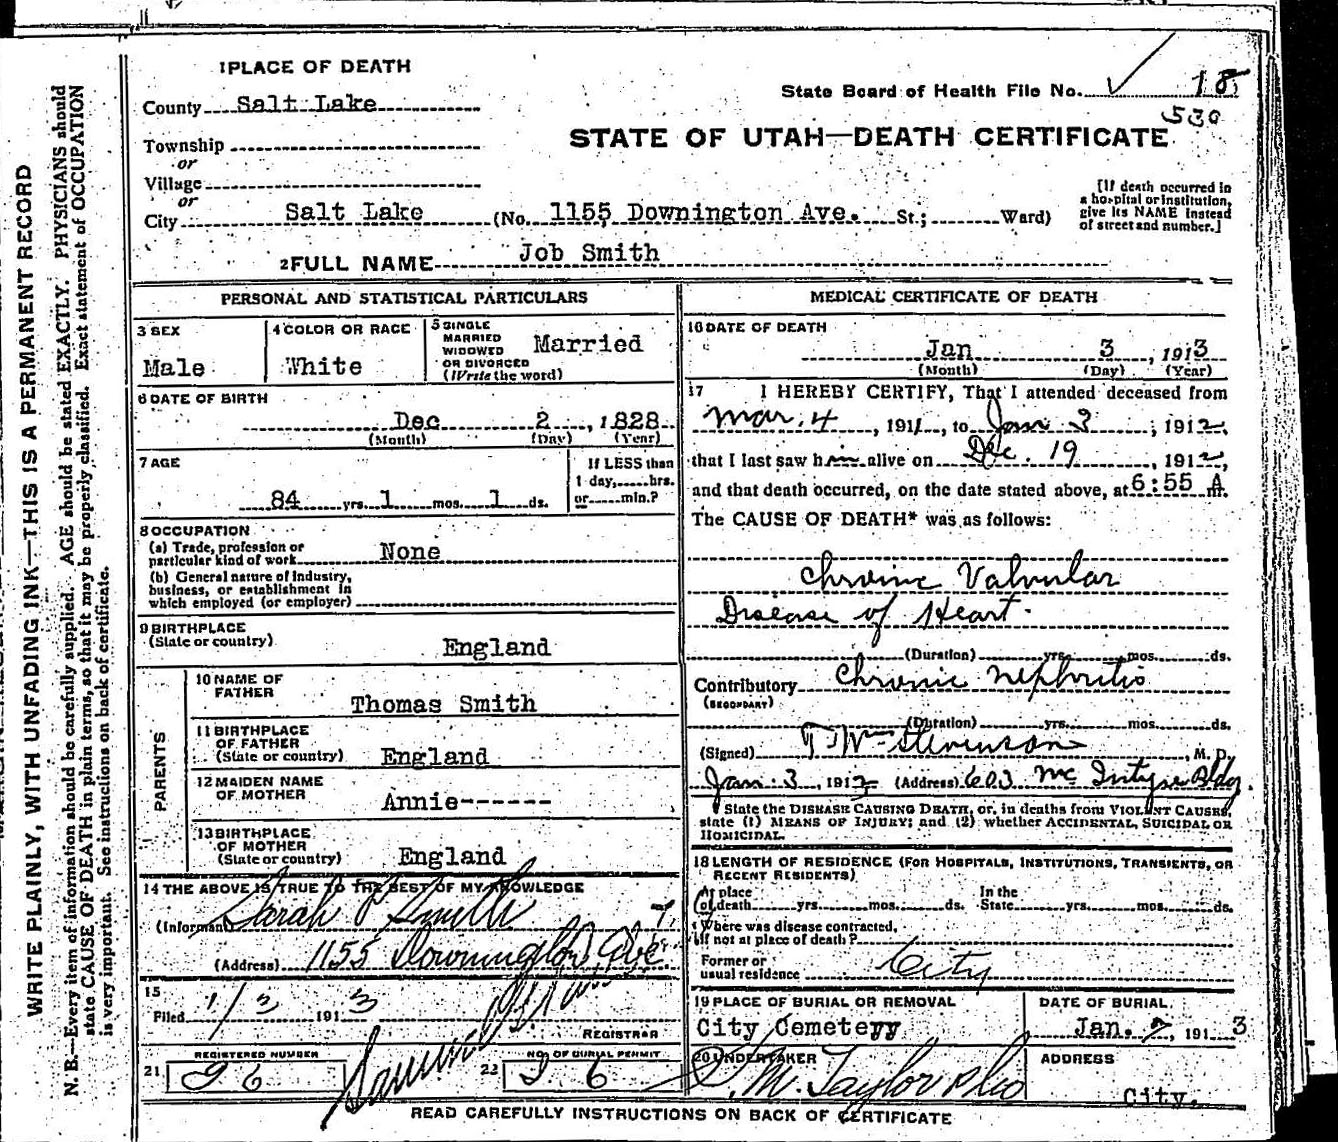 1PLACE OF DEATH
County Salt Lake
State Board of Health File No. 18
530
Township
STATE OF UTAH—DEATH CERTIFICATE
or
Village
or
City Salt Lake (No. 1155 Downington Ave. St.; Ward)
[If death occurred in a hospital or institution, give its NAME instead of street and number.]
2FULL NAME Job Smith
PERSONAL AND STATISTICAL PARTICULARS
3 SEX
Male
4 COLOR OR RACE
White
5 SINGLE
MARRIED
WIDOWED
OR DIVORCED
(Write the word)
Married
6 DATE OF BIRTH
Dec 2, 1828
(Month) (Day) (Year)
7 AGE
84 yrs. 1 mos. 1 ds.
If LESS than
1 day, hrs.
or min.?
8 OCCUPATION
(a) Trade, profession or
particular kind of work None
(b) General nature of Industry,
business, or establishment in
which employed (or employer)
9 BIRTHPLACE
(State or country)
England
PARENTS
10 NAME OF
FATHER
Thomas Smith
11 BIRTHPLACE
OF FATHER
(State or country) England
12 MAIDEN NAME
OF MOTHER
Annie------
13 BIRTHPLACE
OF MOTHER
(State or country) England
14 THE ABOVE IS TRUE TO THE BEST OF MY KNOWLEDGE
(Informant) Sarah P Smith
(Address) 1155 Downington Ave.
15
Filed 1/3 1913
REGISTRAR
REGISTERED NUMBER
21 26
NO. OF BURIAL PERMIT
22 26
MEDICAL CERTIFICATE OF DEATH
16 DATE OF DEATH
Jan 3, 1913
(Month) (Day) (Year)
17 I HEREBY CERTIFY, That I attended deceased from
Mar. 4, 1911, to Jan 3, 1912,
that I last saw him alive on Dec. 19, 1912,
and that death occurred, on the date stated above, at 6:55 A m.
The CAUSE OF DEATH* was as follows:
Chronic Valvular
Disease of Heart.
(Duration) yrs. mos. ds.
Contributory Chronic nephritis
(SECONDARY)
(Duration) yrs. mos. ds.
(Signed) T. Wm Stevenson, M. D.
Jan. 3, 1913 (Address) 603 McIntyre Bldg.
* State the DISEASE CAUSING DEATH, or, in deaths from VIOLENT CAUSES,
state (1) MEANS OF INJURY; and (2) whether ACCIDENTAL, SUICIDAL OR
HOMICIDAL.
18 LENGTH OF RESIDENCE (FOR HOSPITALS, INSTITUTIONS, TRANSIENTS, OR
RECENT RESIDENTS)
At place
of death yrs. mos. ds.
In the
State yrs. mos. ds.
Where was disease contracted,
if not at place of death?
Former or
usual residence City
19 PLACE OF BURIAL OR REMOVAL
City Cemetery
DATE OF BURIAL.
Jan. 7, 1913
20 UNDERTAKER
S. M. Taylor
ADDRESS
City.
READ CAREFULLY INSTRUCTIONS ON BACK OF CERTIFICATE
WRITE PLAINLY, WITH UNFADING INK—THIS IS A PERMANENT RECORD
N. B.—Every item of information should be carefully supplied. AGE should be stated EXACTLY. PHYSICIANS should
state CAUSE OF DEATH in plain terms, so that it may be properly classified. Exact statement of OCCUPATION
is very important. See instructions on back of certificate.